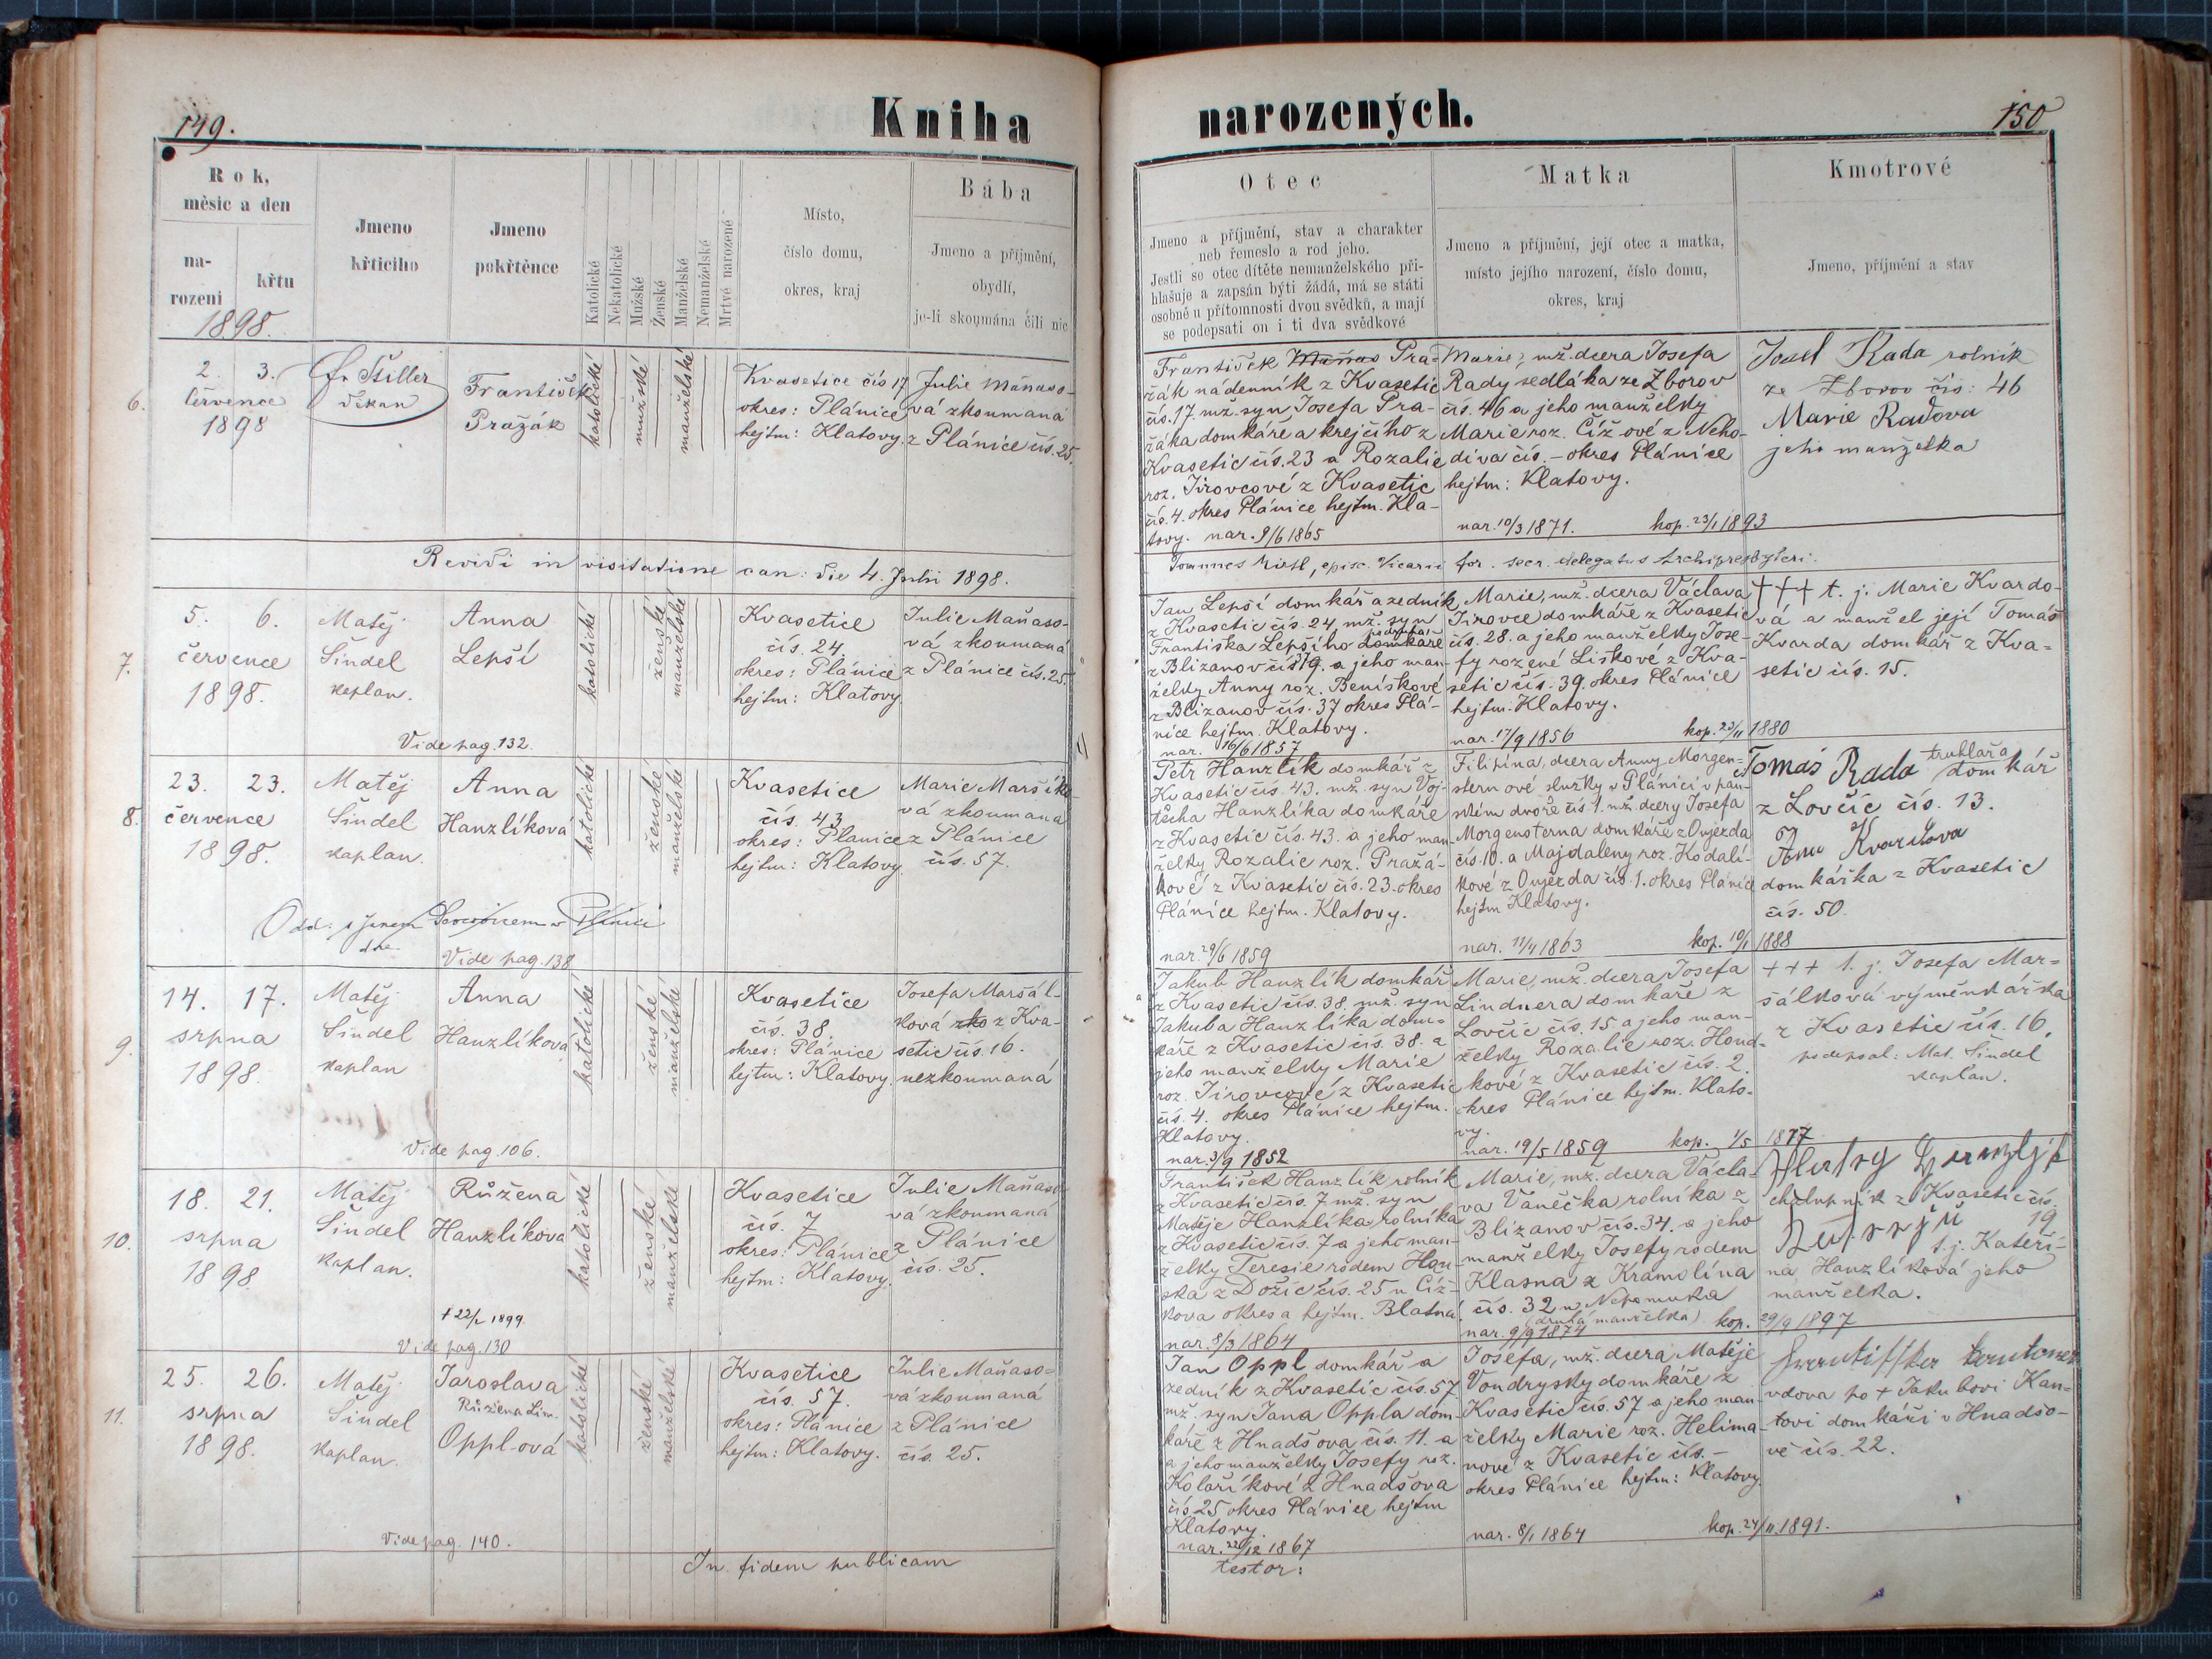 149.
Kniha
Rok,
měsíc a den
na-
rození
křtu
1898.
Jmeno
křticího
Jmeno
pokřtěnce
Katolické
Nekatolické
Mužské
Ženské
Manželské
Nemanželské
Mrtvě narozené
Místo,
číslo domu,
okres, kraj
Bába
Jmeno a příjmění,
obydlí,
je-li skoumána čili nic
6.
2. 3.
července
1898
Fr. Šiller
děkan
František
Pražák
katolické
mužské
manželské
Kvasetice čís 17
okres: Plánice
hejtm: Klatovy.
Julie Maňaso-
vá zkoumaná
z Plánice čís. 25.
Revidi in visitatione can: die 4. Julii 1898.
7.
5. 6.
července
1898.
Matěj
Šindel
kaplan.
Anna
Lepší
katolické
ženské
manželské
Kvasetice
čís. 24.
okres: Plánice
hejtm: Klatovy.
Julie Maňaso-
vá zkoumaná
z Plánice čís. 25.
Vide pag. 132.
8.
23. 23.
července
1898.
Matěj
Šindel
kaplan.
Anna
Hanzlíková
katolické
ženské
manželské
Kvasetice
čís. 43
okres: Plánice
hejtm: Klatovy.
Marie Maršík-
vá zkoumaná
z Plánice
čís. 57.
Odd: s Janem
dne
Vide pag. 138
9.
14. 17.
srpna
1898.
Matěj
Šindel
kaplan
Anna
Hanzlíková
katolické
ženské
manželské
Kvasetice
čís. 38.
okres: Plánice
hejtm: Klatovy.
Josefa Maršál-
ková zko z Kva-
setic čís. 16.
nezkoumaná
Vide pag. 106.
10.
18. 21.
srpna
1898
Matěj
Šindel
kaplan.
Růžena
Hanzlíková
katolické
ženské
manželské
Kvasetice
čís. 7
okres: Plánice
hejtm: Klatovy.
Julie Maňaso-
vá zkoumaná
z Plánice
čís. 25.
† 22/2 1899.
Vide pag. 130
11.
25. 26.
srpna
1898.
Matěj
Šindel
kaplan.
Jaroslava
Růžena Lim.
Oppl-ová
katolické
ženské
manželské
Kvasetice
čís. 57.
okres: Plánice
hejtm: Klatovy.
Julie Maňaso-
vá zkoumaná
z Plánice
čís. 25.
Vide pag. 140.
In fidem publicam
narozených.
150
Otec
Jmeno a příjmění, stav a charakter
neb řemeslo a rod jeho.
Jestli se otec dítěte nemanželského při-
hlašuje a zapsán býti žádá, má se státi
osobně u přítomnosti dvou svědků, a mají
se podepsati on i ti dva svědkové
Matka
Jmeno a příjmění, její otec a matka,
místo jejího narození, číslo domu,
okres, kraj
Kmotrové
Jmeno, příjmění a stav
František Maňas Pra-
žák nádenník z Kvasetic
čís. 17. mž. syn Josefa Pra-
žáka domkáře a krejčího z
Kvasetic čís. 23 a Rozalie
roz. Jírovcové z Kvasetic
čís. 4. okres Plánice hejtm. Kla-
tovy. nar. 9/6 1865
Marie, mž. dcera Josefa
Rady sedláka ze Zborov
čís. 46 a jeho manželky
Marie roz. Čížové z Neho-
diva čís. – okres Plánice
hejtm: Klatovy.
nar. 10/3 1871. kop. 23/1 1893
Josef Rada rolník
ze Zborov čís: 46
Marie Radova
jeho manželka
episc. Vicarii for. secr. delegatus Archipresbyteri.
Jan Lepší domkář a zedník
z Kvasetic čís. 24. mž. syn
Františka Lepšího domkáře
z Blizanov čís 19. a jeho man-
želky Anny roz. Benískové
z Blizanov čís. 37 okres Plá-
nice hejtm. Klatovy.
nar. 16/6 1857
Marie, mž. dcera Václava
Jírovce domkáře z Kvasetic
čís. 28. a jeho manželky Jose-
fy rozené Liškové z Kva-
setic čís. 39. okres Plánice
hejtm. Klatovy.
nar. 17/9 1856 kop. 23/11 1880
+++ t. j. Marie Kvardo-
vá a manžel její Tomáš
Kvarda domkář z Kva-
setic čís. 15.
Petr Hanzlík domkář z
Kvasetic čís. 43. mž. syn Voj-
těcha Hanzlíka domkáře
z Kvasetic čís. 43. a jeho man-
želky Rozalie roz. Pražá-
kové z Kvasetic čís. 23. okres
Plánice hejtm. Klatovy.
nar. 29/6 1859
Filipína, dcera Anny Morgen-
sternové služky v Plánici v pan-
ském dvoře čís 1. mž. dcery Josefa
Morgensterna domkáře z Oujezda
čís. 10. a Majdaleny roz. Kodalí-
kové z Oujezda čís. 1. okres Plánice
hejtm Klatovy.
nar. 11/4 1863 kop. 10/1 1888
Tomáš Rada truhlář a
domkář
z Lovčic čís. 13.
Anna Kvardova
domkářka z Kvasetic
čís. 50.
Jakub Hanzlík domkář
z Kvasetic čís. 38. mž. syn
Jakuba Hanzlíka dom-
káře z Kvasetic čís. 38. a
jeho manželky Marie
roz. Jírovcové z Kvasetic
čís. 4. okres Plánice hejtm.
Klatovy.
nar. 3/9 1852
Marie, mž. dcera Josefa
Lindnera domkáře z
Lovčic čís. 15 a jeho man-
želky Rozalie roz. Houd-
kové z Kvasetic čís. 2.
okres Plánice hejtm. Klato-
vy.
nar. 19/5 1859 kop. 1/5 1877
+++ t. j. Josefa Mar-
šálková výměnkářka
z Kvasetic čís. 16.
podepsal: Mat. Šindel
kaplan.
František Hanzlík rolník
z Kvasetic čís. 7 mž. syn
Matěje Hanzlíka rolníka
z Kvasetic čís. 7 a jeho man-
želky Teresie rodem Hou-
ska z Dožic čís. 25 u Číž-
kova okres a hejtm. Blatná
nar. 8/3 1864
Marie, mž. dcera Václa-
va Vaněčka rolníka z
Blizanov čís. 34. a jeho
manželky Josefy rodem
Klasna z Kramolína
čís. 32 u Nepomuka
(druhá manželka)
nar. 9/9 1874 kop. 29/9 1897
chalupník z Kvasetic čís.
19
t. j. Kateři-
na Hanzlíková jeho
manželka.
Jan Oppl domkář a
zedník z Kvasetic čís. 57
mž. syn Jana Oppla dom-
káře z Hnadšova čís. 11. a
a jeho manželky Josefy roz.
Kolaříkové z Hnadšova
čís 25 okres Plánice hejtm
Klatovy.
nar. 22/12 1867
Josefa, mž. dcera Matěje
Voudrysky domkáře z
Kvasetic čís. 57 a jeho man-
želky Marie roz. Helima-
nové z Kvasetic čís. –
okres Plánice hejtm: Klatovy.
nar. 8/1 1864 kop. 24/11 1891.
vdova po + Jakubovi Kan-
tovi domkáři v Hnadšo-
vě čís. 22.
testor: